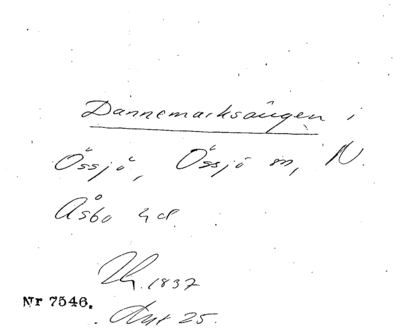 Dannemarksängen i
Össjö, Össjö sn, N.
Åsbo hd.
1837
Nr 7546.
Akt 25.